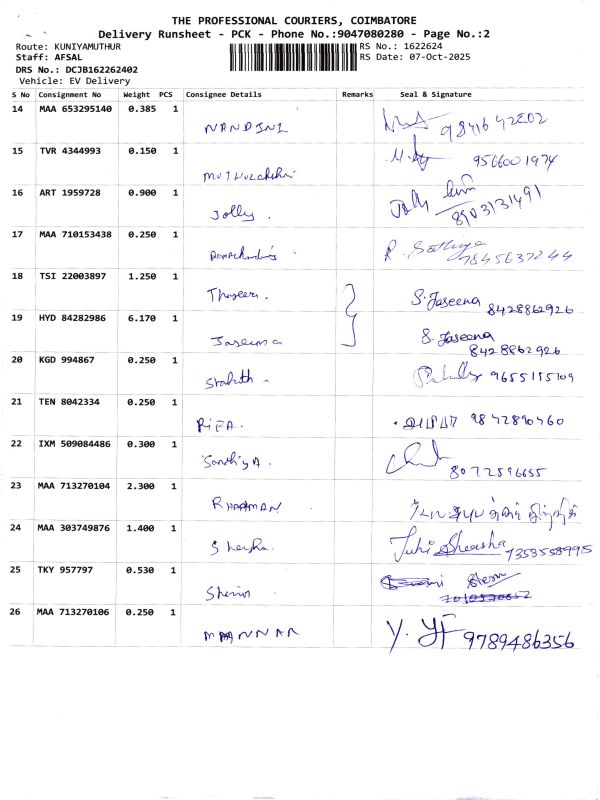 THE PROFESSIONAL COURIERS, COIMBATORE
Delivery Runsheet - PCK - Phone No.:9047080280 - Page No.:2
Route: KUNIYAMUTHUR RS No.: 1622624
Staff: AFSAL RS Date: 07-Oct-2025
DRS No.: DCJB162262402
Vehicle: EV Delivery
S No Consignment No Weight PCS Consignee Details Remarks Seal & Signature
14 MAA 653295140 0.385 1
NANDINI 9841642202
15 TVR 4344993 0.150 1
9566001974
16 ART 1959728 0.900 1
Jolly. Jolly 8903131491
17 MAA 710153438 0.250 1
R. Sathiya 7845637244
18 TSI 22003897 1.250 1
S. Jaseena 8428862926
19 HYD 84282986 6.170 1
Jaseena S. Jaseena
8428862926
20 KGD 994867 0.250 1
9655155109
21 TEN 8042334 0.250 1
RIFA. 9842890460
22 IXM 509084486 0.300 1
Sandhiya.
8072596655
23 MAA 713270104 2.300 1
RHAAMAN
24 MAA 303749876 1.400 1
Juhi Sheasha 7358558995
25 TKY 957797 0.530 1
26 MAA 713270106 0.250 1
MAANNAR 9789486356